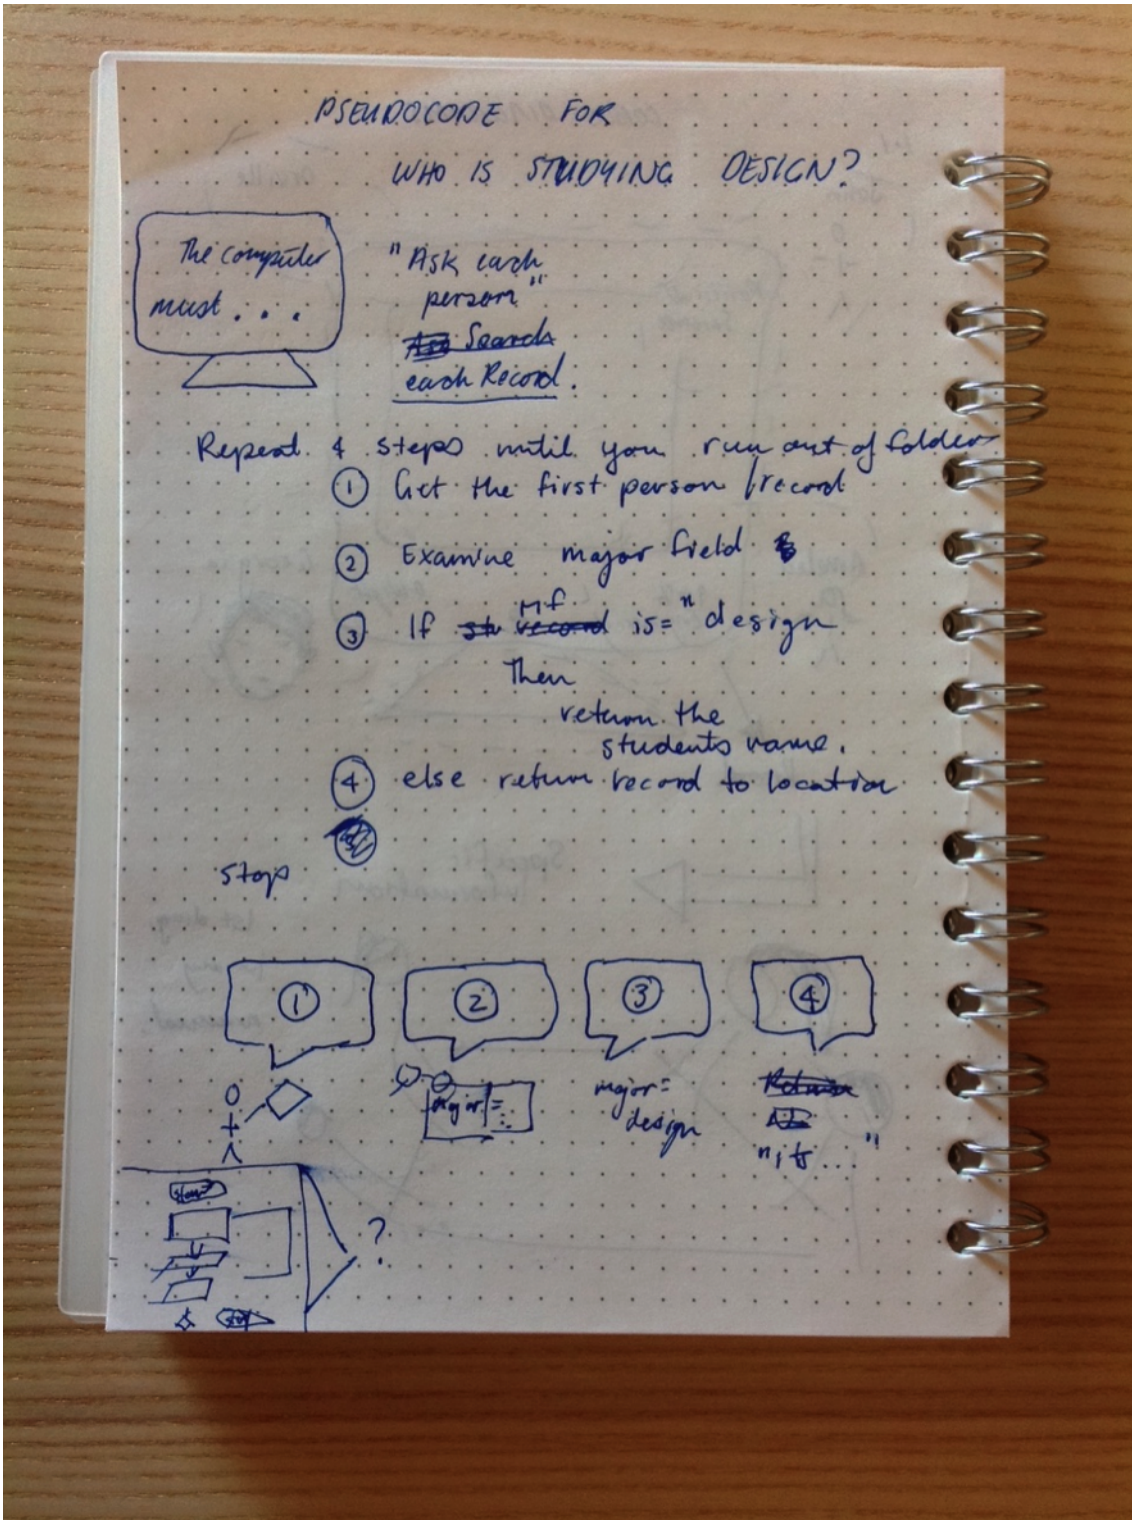 PSEUDOCODE FOR
WHO IS STUDYING DESIGN?
The computer
must...
"Ask each
person"
Search
each Record.
Repeat 4 steps until you run out of folders
1 Get the first person/record
2 Examine major field
MF
3 If record is= "design
Then
return the
students name.
4 else return record to location
stop
1 2 3 4
major=
major=
design
Return
"its..."
Start
?
Stop